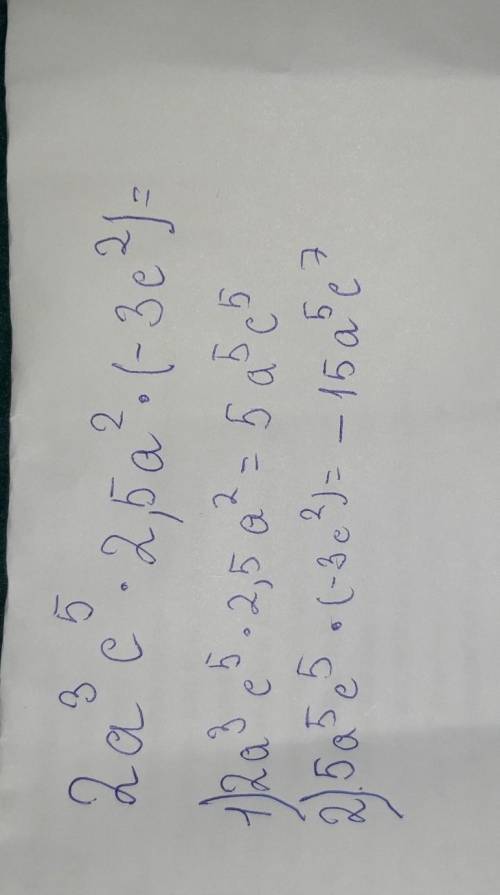 2a³c⁵ · 2,5a² · (-3c²) =
1) 2a³c⁵ · 2,5a² = 5a⁵c⁵
2) 5a⁵c⁵ · (-3c²) = -15a⁵c⁷